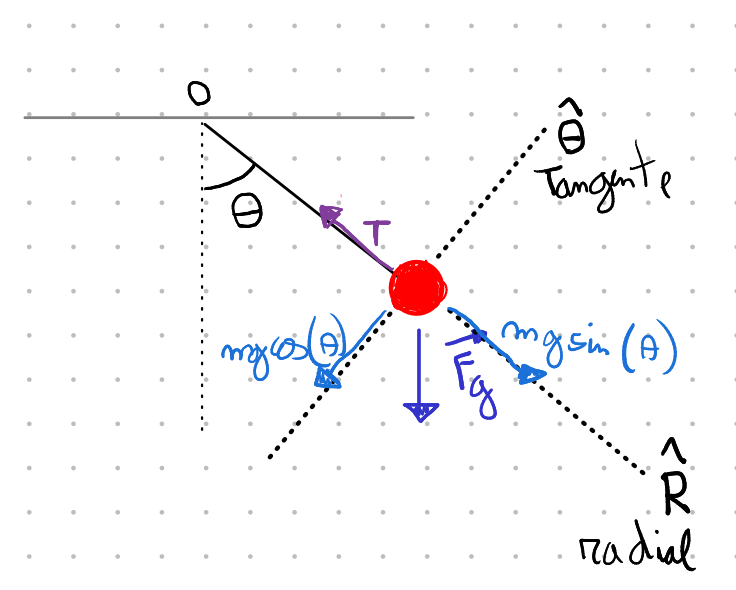 O
θ̂
Tangente
θ
T
mg cos(θ)
mg sin(θ)
F⃗g
R̂
radial